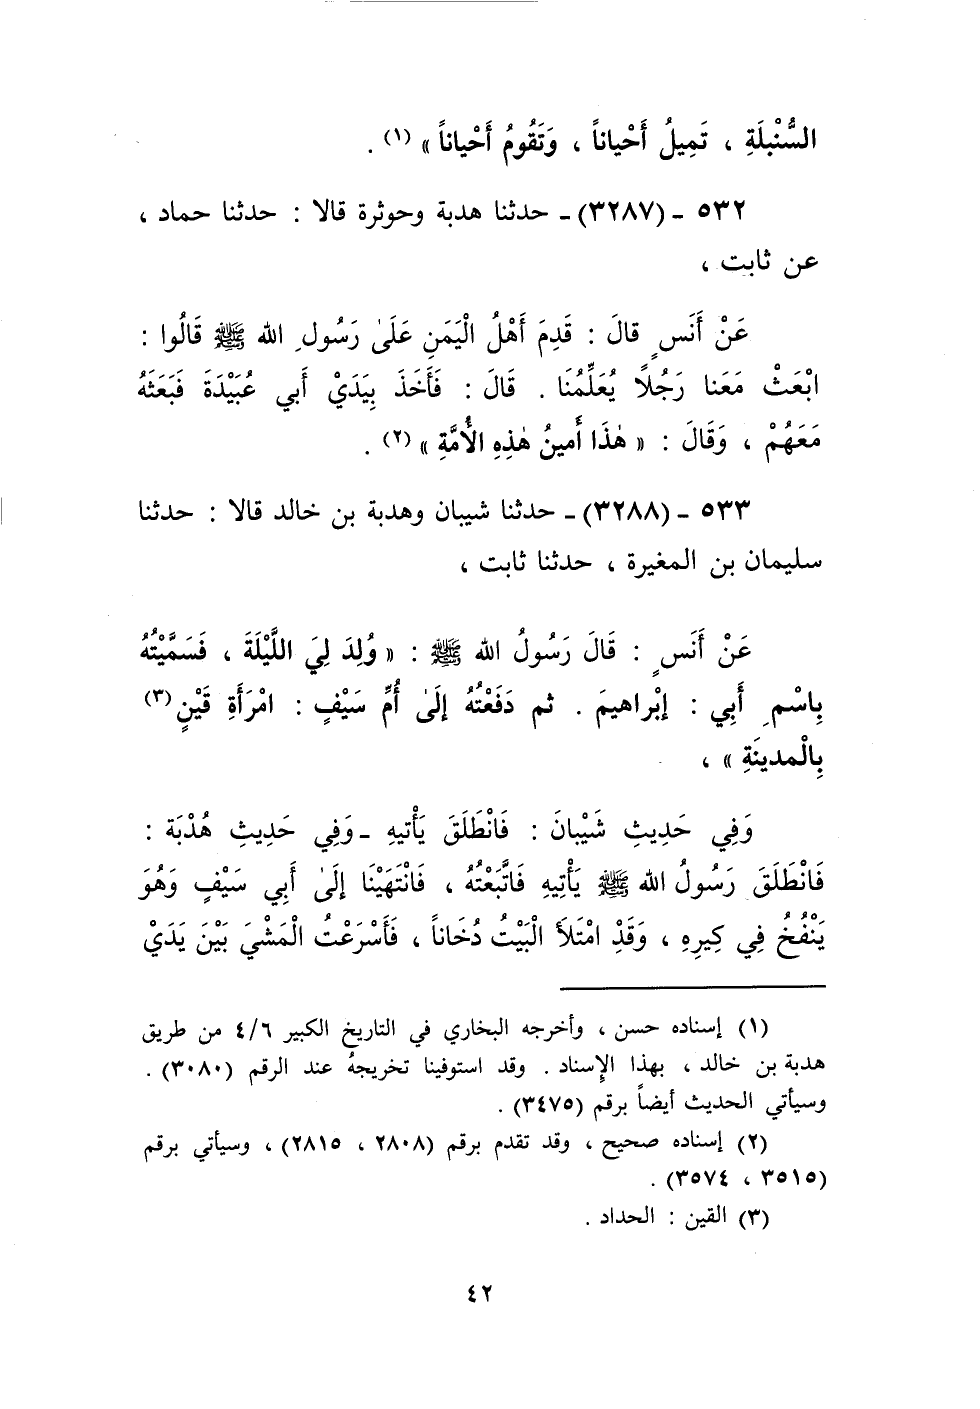 السُّنْبلَةِ ، تَمِيلُ أَحْياناً ، وَتَقُومُ أَحْياناً » (١) .
٥٣٢ ـ (٣٢٨٧) ـ حدثنا هدبة وحوثرة قالا : حدثنا حماد ،
عن ثابت ،
عَنْ أَنَسٍ قالَ : قَدِمَ أَهْلُ الْيَمَنِ عَلَىٰ رَسُولِ الله ﷺ قَالُوا :
ابْعَثْ مَعَنا رَجُلاً يُعَلِّمُنَا . قَالَ : فَأَخَذَ بِيَدَيْ أَبي عُبَيْدَةَ فَبَعَثَهُ
مَعَهُمْ ، وَقَالَ : « هٰذَا أَمينُ هٰذِهِ الأُمَّةِ » (٢) .
٥٣٣ ـ (٣٢٨٨) ـ حدثنا شيبان وهدبة بن خالد قالا : حدثنا
سليمان بن المغيرة ، حدثنا ثابت ،
عَنْ أَنَسٍ : قَالَ رَسُولُ الله ﷺ : « وُلِدَ لِيَ اللَّيْلَةَ ، فَسَمَّيْتُهُ
بِاسْمِ أَبِي : إبْراهيمَ . ثم دَفَعْتُهُ إلَىٰ أُمِّ سَيْفٍ : امْرَأَةِ قَيْنٍ (٣)
بِالْمدينَةِ » ،
وَفِي حَدِيثِ شَيْبانَ : فَانْطَلَقَ يَأْتيهِ ـ وَفِي حَدِيثِ هُدْبَة :
فَانْطَلَقَ رَسُولُ الله ﷺ يَأْتِيهِ فَاتَّبَعْتُهُ ، فَانْتَهَيْنَا إلَىٰ أَبِي سَيْفٍ وَهُوَ
يَنْفُخُ فِي كِيرِهِ ، وَقَدْ امْتَلأَ الْبَيْتُ دُخَاناً ، فَأَسْرَعْتُ الْمَشْيَ بَيْنَ يَدَيْ
(١) إسناده حسن ، وأخرجه البخاري في التاريخ الكبير ٤/٦ من طريق
هدبة بن خالد ، بهذا الإِسناد . وقد استوفينا تخريجهُ عند الرقم (٣٠٨٠) .
وسيأتي الحديث أيضاً برقم (٣٤٧٥) .
(٢) إسناده صحيح ، وقد تقدم برقم (٢٨٠٨ ، ٢٨١٥) ، وسيأتي برقم
(٣٥١٥ ، ٣٥٧٤) .
(٣) القين : الحداد .
٤٢